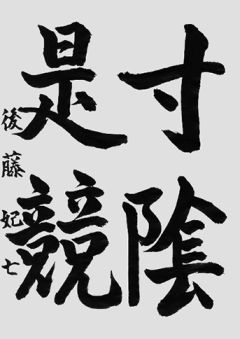 寸陰
是競
後藤妃七